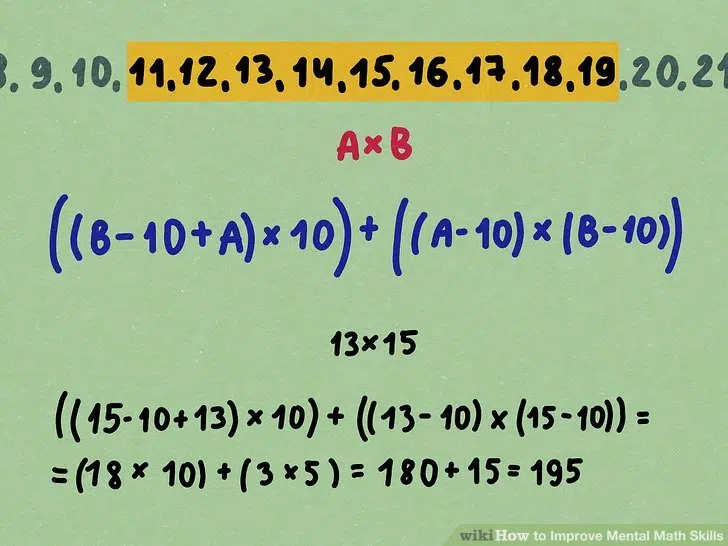 8, 9, 10, 11, 12, 13, 14, 15, 16, 17, 18, 19, 20, 21
A×B
((B-10+A)×10)+((A-10)×(B-10))
13×15
((15-10+13)×10)+((13-10)×(15-10))=
=(18×10)+(3×5)=180+15=195
wikiHow to Improve Mental Math Skills